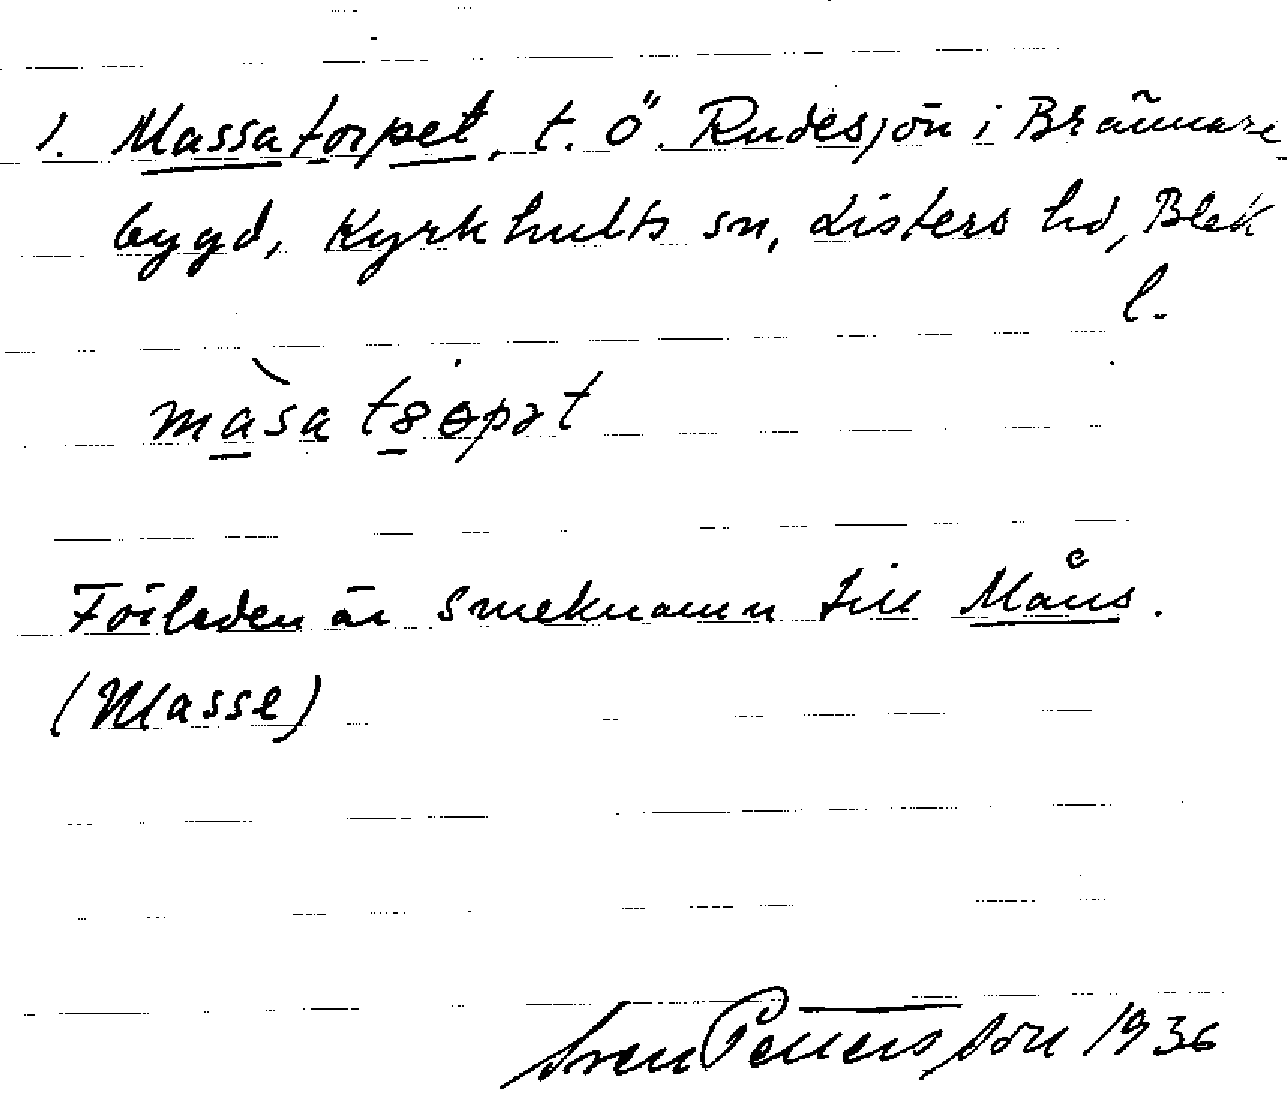 1. Massatorpet, t. Ö. Rudesjön i Brännare
bygd, Kyrkhults sn, Listers hd, Blek
l.
Förleden är smeknamn till Måns.
(Masse)
Sven Pettersson 1936